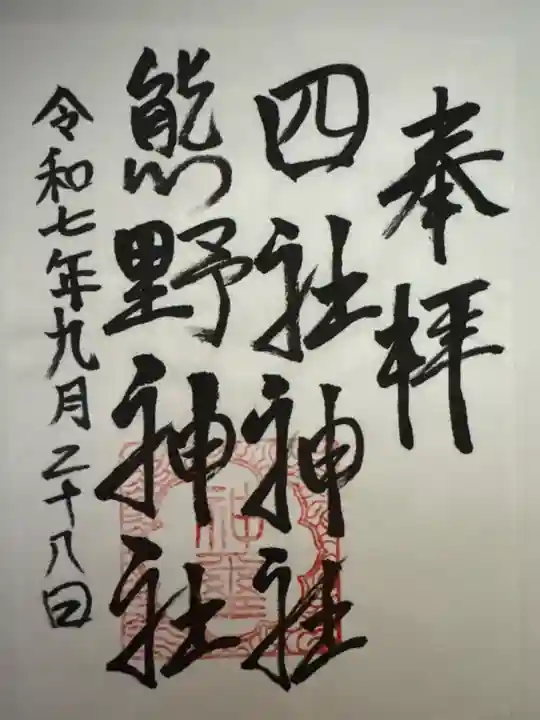 奉拝
四社神社
熊野神社
令和七年九月二十八日
神璽